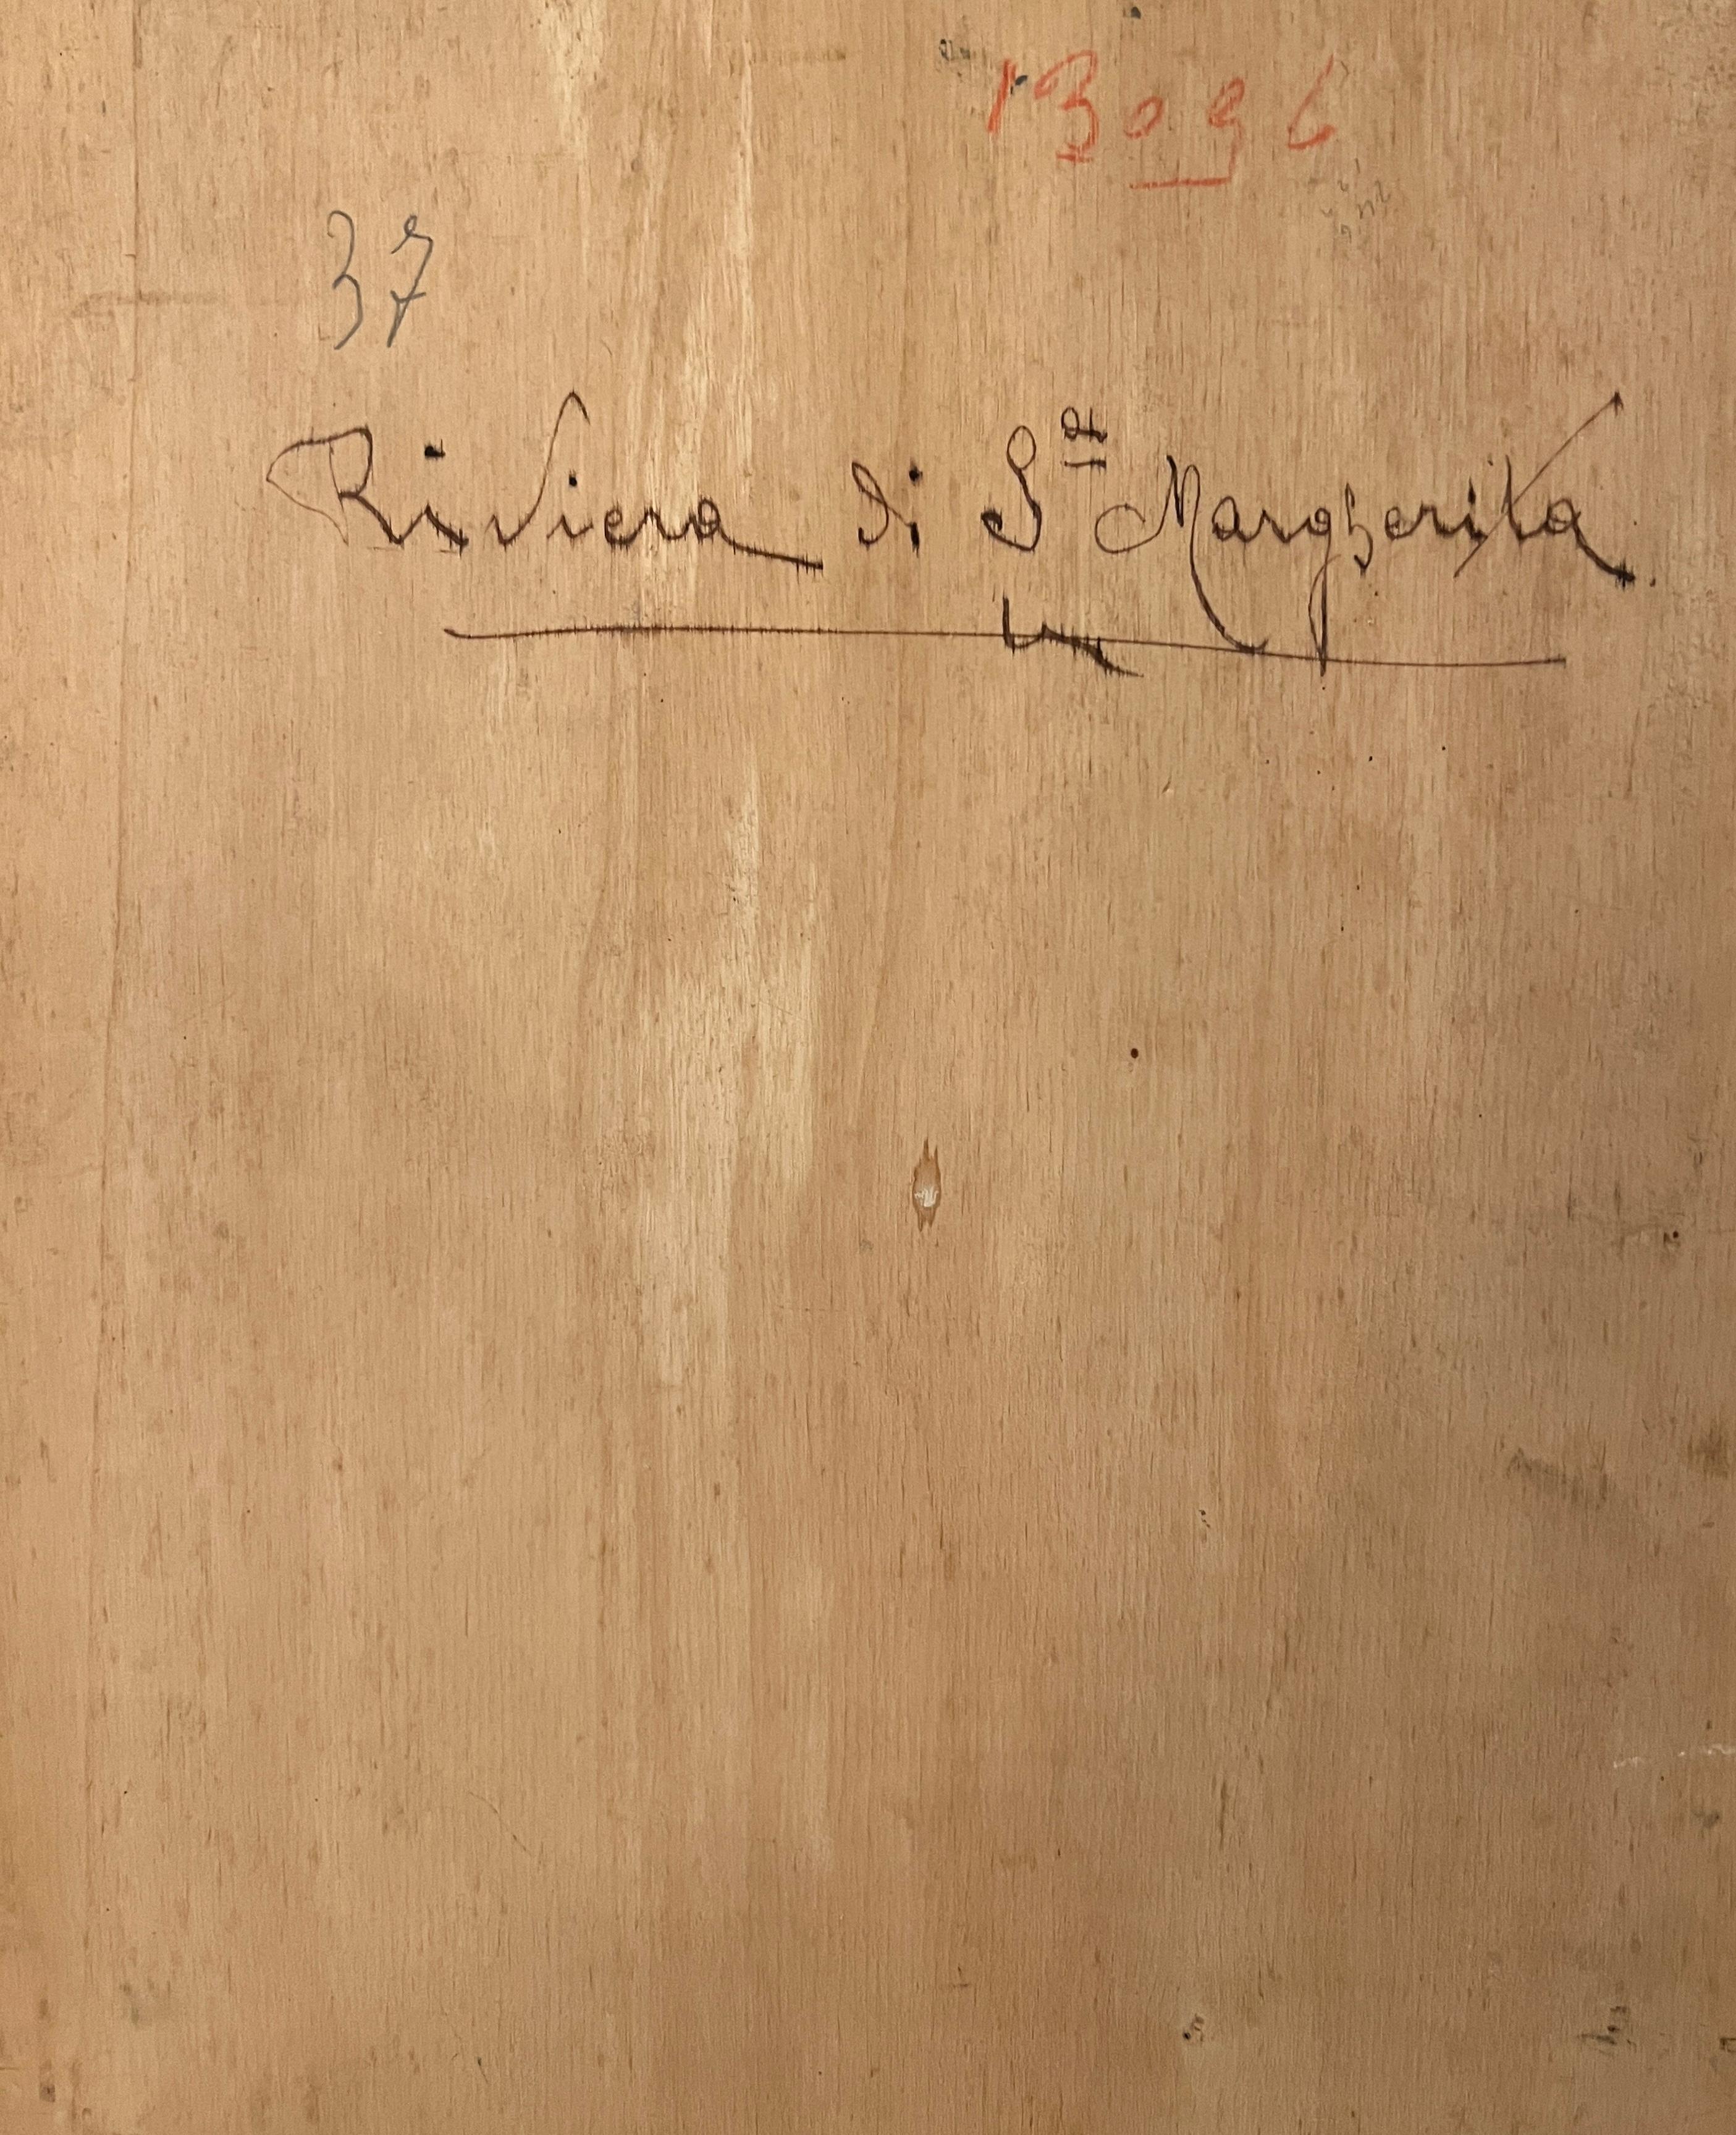 13096
37
Riviera di Sta Margherita